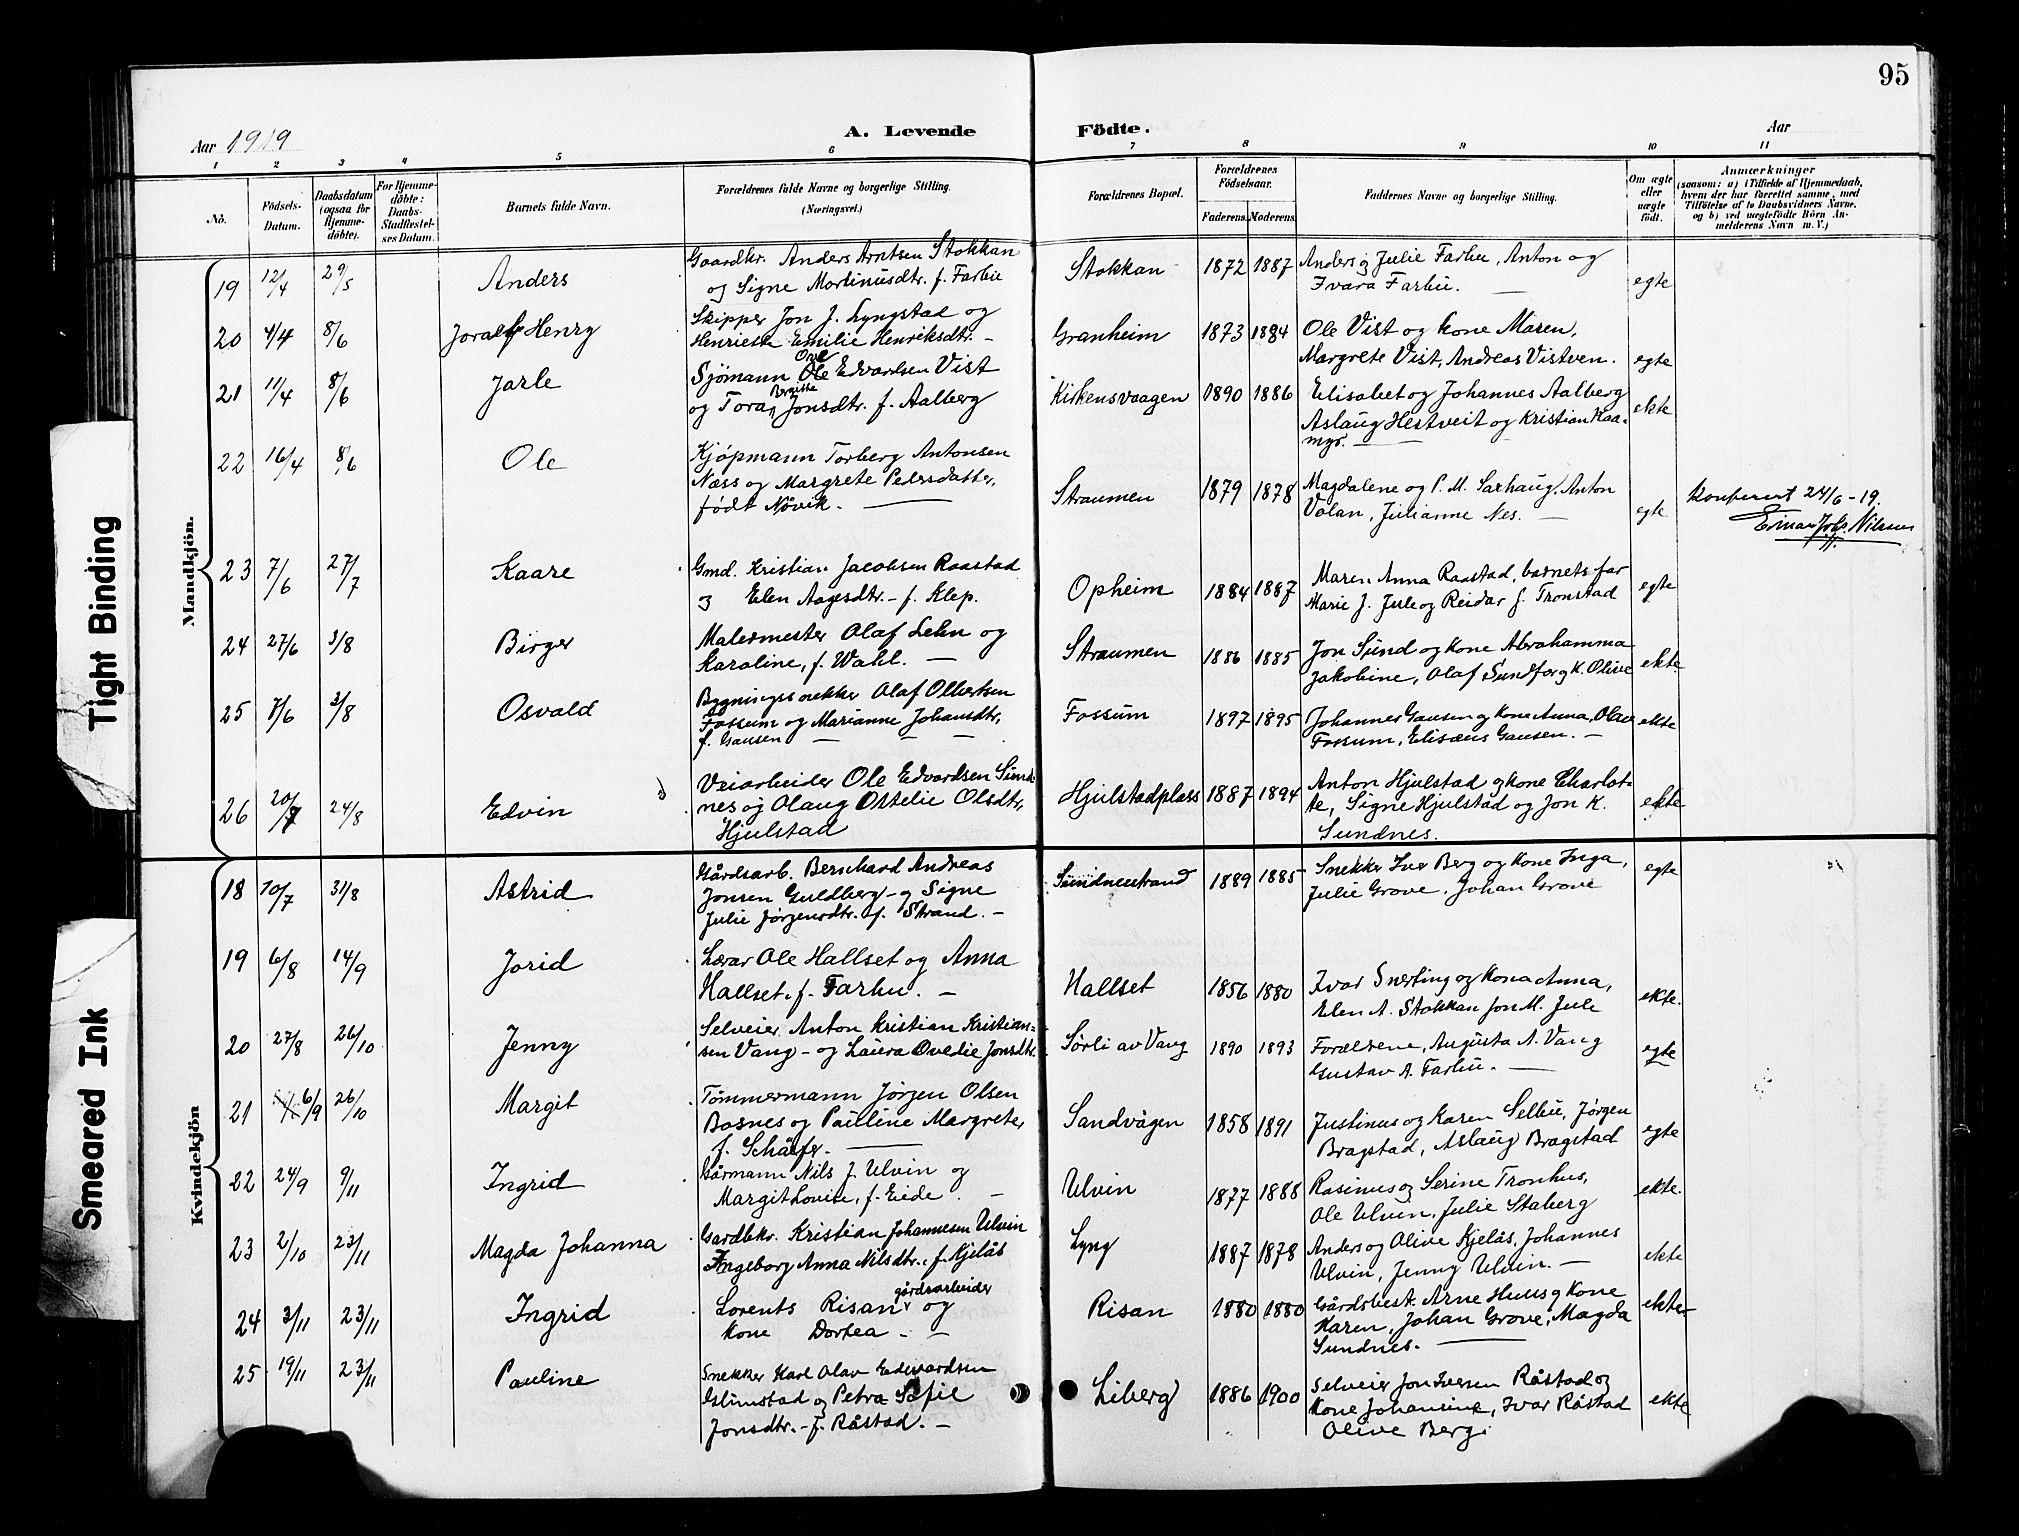 95
Aar 1919
A. Levende Födte.
Aar
1 2 3 4 5 6 7 8 9 10 11
No.
Födsels-Datum.
Daabsdatum (ogsaa for Hjemme-döbte).
For Hjemme-döbte: Daabs-Stadfæstel-ses Datum.
Barnets fulde Navn.
Forældrenes fulde Navne og borgerlige Stilling. (Næringsvei.)
Forældrenes Bopæl.
Forældrenes Födselsaar.
Faderens. Moderens.
Faddernes Navne og borgerlige Stilling.
Om ægte eller uægte födt.
Anmærkninger
(saasom: a) i Tilfælde af Hjemmedaab, hvem der har forrettet samme, med Tilföielse af to Daabsvidners Navne, og b) ved uægtefödte Börn An-melderens Navn m. V.)
Mandkjön.
19 12/4 29/5 Anders Gaardbr. Anders Arntsen Stokkan og Signe Martinusdtr. f. Farbu Stokkan 1872 1887 Anders og Julie Farbu, Anton og Ivara Farbu. egte
20 4/4 8/6 Joralf Henry Skipper Jon J. Lyngstad og Henriette Emilie Henriksdtr. - Granheim 1873 1884 Ole Vist og kone Maren, Margrete Vist, Andreas Vistven. egte
21 11/4 8/6 Jarle Sjömann Ole Edvardsen Vist og Tora Jonsdtr. f. Aalberg Kirkensvaagen 1890 1886 Elisabet og Johannes Aalberg Aslaug Hestveit og Kristian egte
22 16/4 8/6 Ole Kjöpmann Torberg Antonsen Næss og Margrete Petersdatter, födt Növik. Straumen 1879 1878 Magdalene og P. M. Saxhaug, Anton Volan, Julianne Nes. egte Konferert 24/6-19.
23 7/6 27/7 Kaare Gmd. Kristian Jacobsen Raastad og Elen Aagesdtr. - f. Klep. Opheim 1884 1887 Maren Anna Raastad, barnets far Marie J. Jule og Reidar J. Tronstad egte
24 27/6 3/8 Birger Malermester Olaf Lehn og Karoline, f. Wahl. Straumen 1886 1885 Jon Sund og kone Abrahamma Jakobine, Olaf Sundfor og K. Olive ekte
25 7/6 3/8 Osvald Bygningssnekker Olaf Olbertsen Fossum og Marianne Johansdtr, f. Gausen Fossum 1897 1895 Johannes Gausen og kone Anna, Olav Fossum, Elisæus Gausen. ekte
26 20/7 24/8 Edvin Veiarbeider Ole Edvardsen Sundnes og Olaug Ottelie Olsdtr, Hjulstad Hjulstadplass 1887 1894 Anton Hjulstad og kone Charlotte, Signe Hjulstad og Jon K. Sundnes. ekte
Kvindekjön
18 10/7 31/8 Astrid Gårdsarb. Bernhard Andreas Jonsen Guldberg - og Signe Julie Jörgensdtr. f. Strand. - Sundnesstrand 1889 1885 Snekker Iver Berg og kone Inga, Julie Grove, Johan Grove egte
19 6/8 14/9 Jorid Lærar Ole Hallset og Anna Hallset, f. Farbu. Hallset 1856 1880 Ivar Snerting og kona Anna, Elen A. Stokkan Jon M. Jule ekte.
20 27/8 26/10 Jenny Selveier Anton Kristian Kristiansen Vang - og Laura Ovedie Jonsdtr. Sörli av Vang 1890 1893 Forældrene, Augusta A. Vang Gustav A. Farbu. egte
21 6/9 26/10 Margit Tömmermann Jörgen Olsen Bosnes og Pauline Margrete, f. Schäfer. Sandvågen 1858 1891 Justinus og Karen Selbu, Jörgen Bragstad, Aslaug Bragstad egte
22 24/9 9/11 Ingrid Gårmann Nils J. Ulvin og Margit Lovise, f. Eide. Ulvin 1877 1888 Rasinus og Serine Tronhus, Ole Ulvin, Julie Staberg ekte.
23 2/10 23/11 Magda Johanna Gardbkr. Kristian Johannesen Ulvin Ingeborg Anna Nilsdtr. f. Kjelås Lyng 1887 1878 Anders og Olive Kjelås, Johannes Ulvin, Jenny Ulvin. ekte
24 3/11 23/11 Ingrid Lorents Risan gårdsarbeider og kone Dortea. Risan 1880 1880 Gårdsbest. Arne Huus og kone Karen, Johan Grove, Magda Sundnes. ekte
25 19/11 23/11 Pauline Snekker Karl Olav Edvardsen Glimstad og Petra Sofie Jonsdtr. - f. Råstad. Liberg 1886 1900 Selveier Jon Iversen Råstad og kone Johansine, Ivar Råstad Olive Berg. ekte
Tight Binding
Smeared Ink